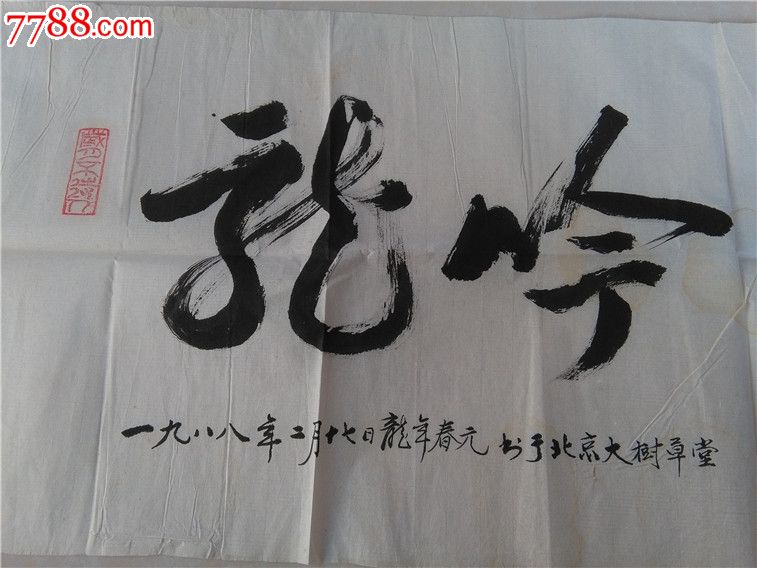 7788.com
龍吟
一九八八年二月十七日龍年春元 书于北京大樹草堂